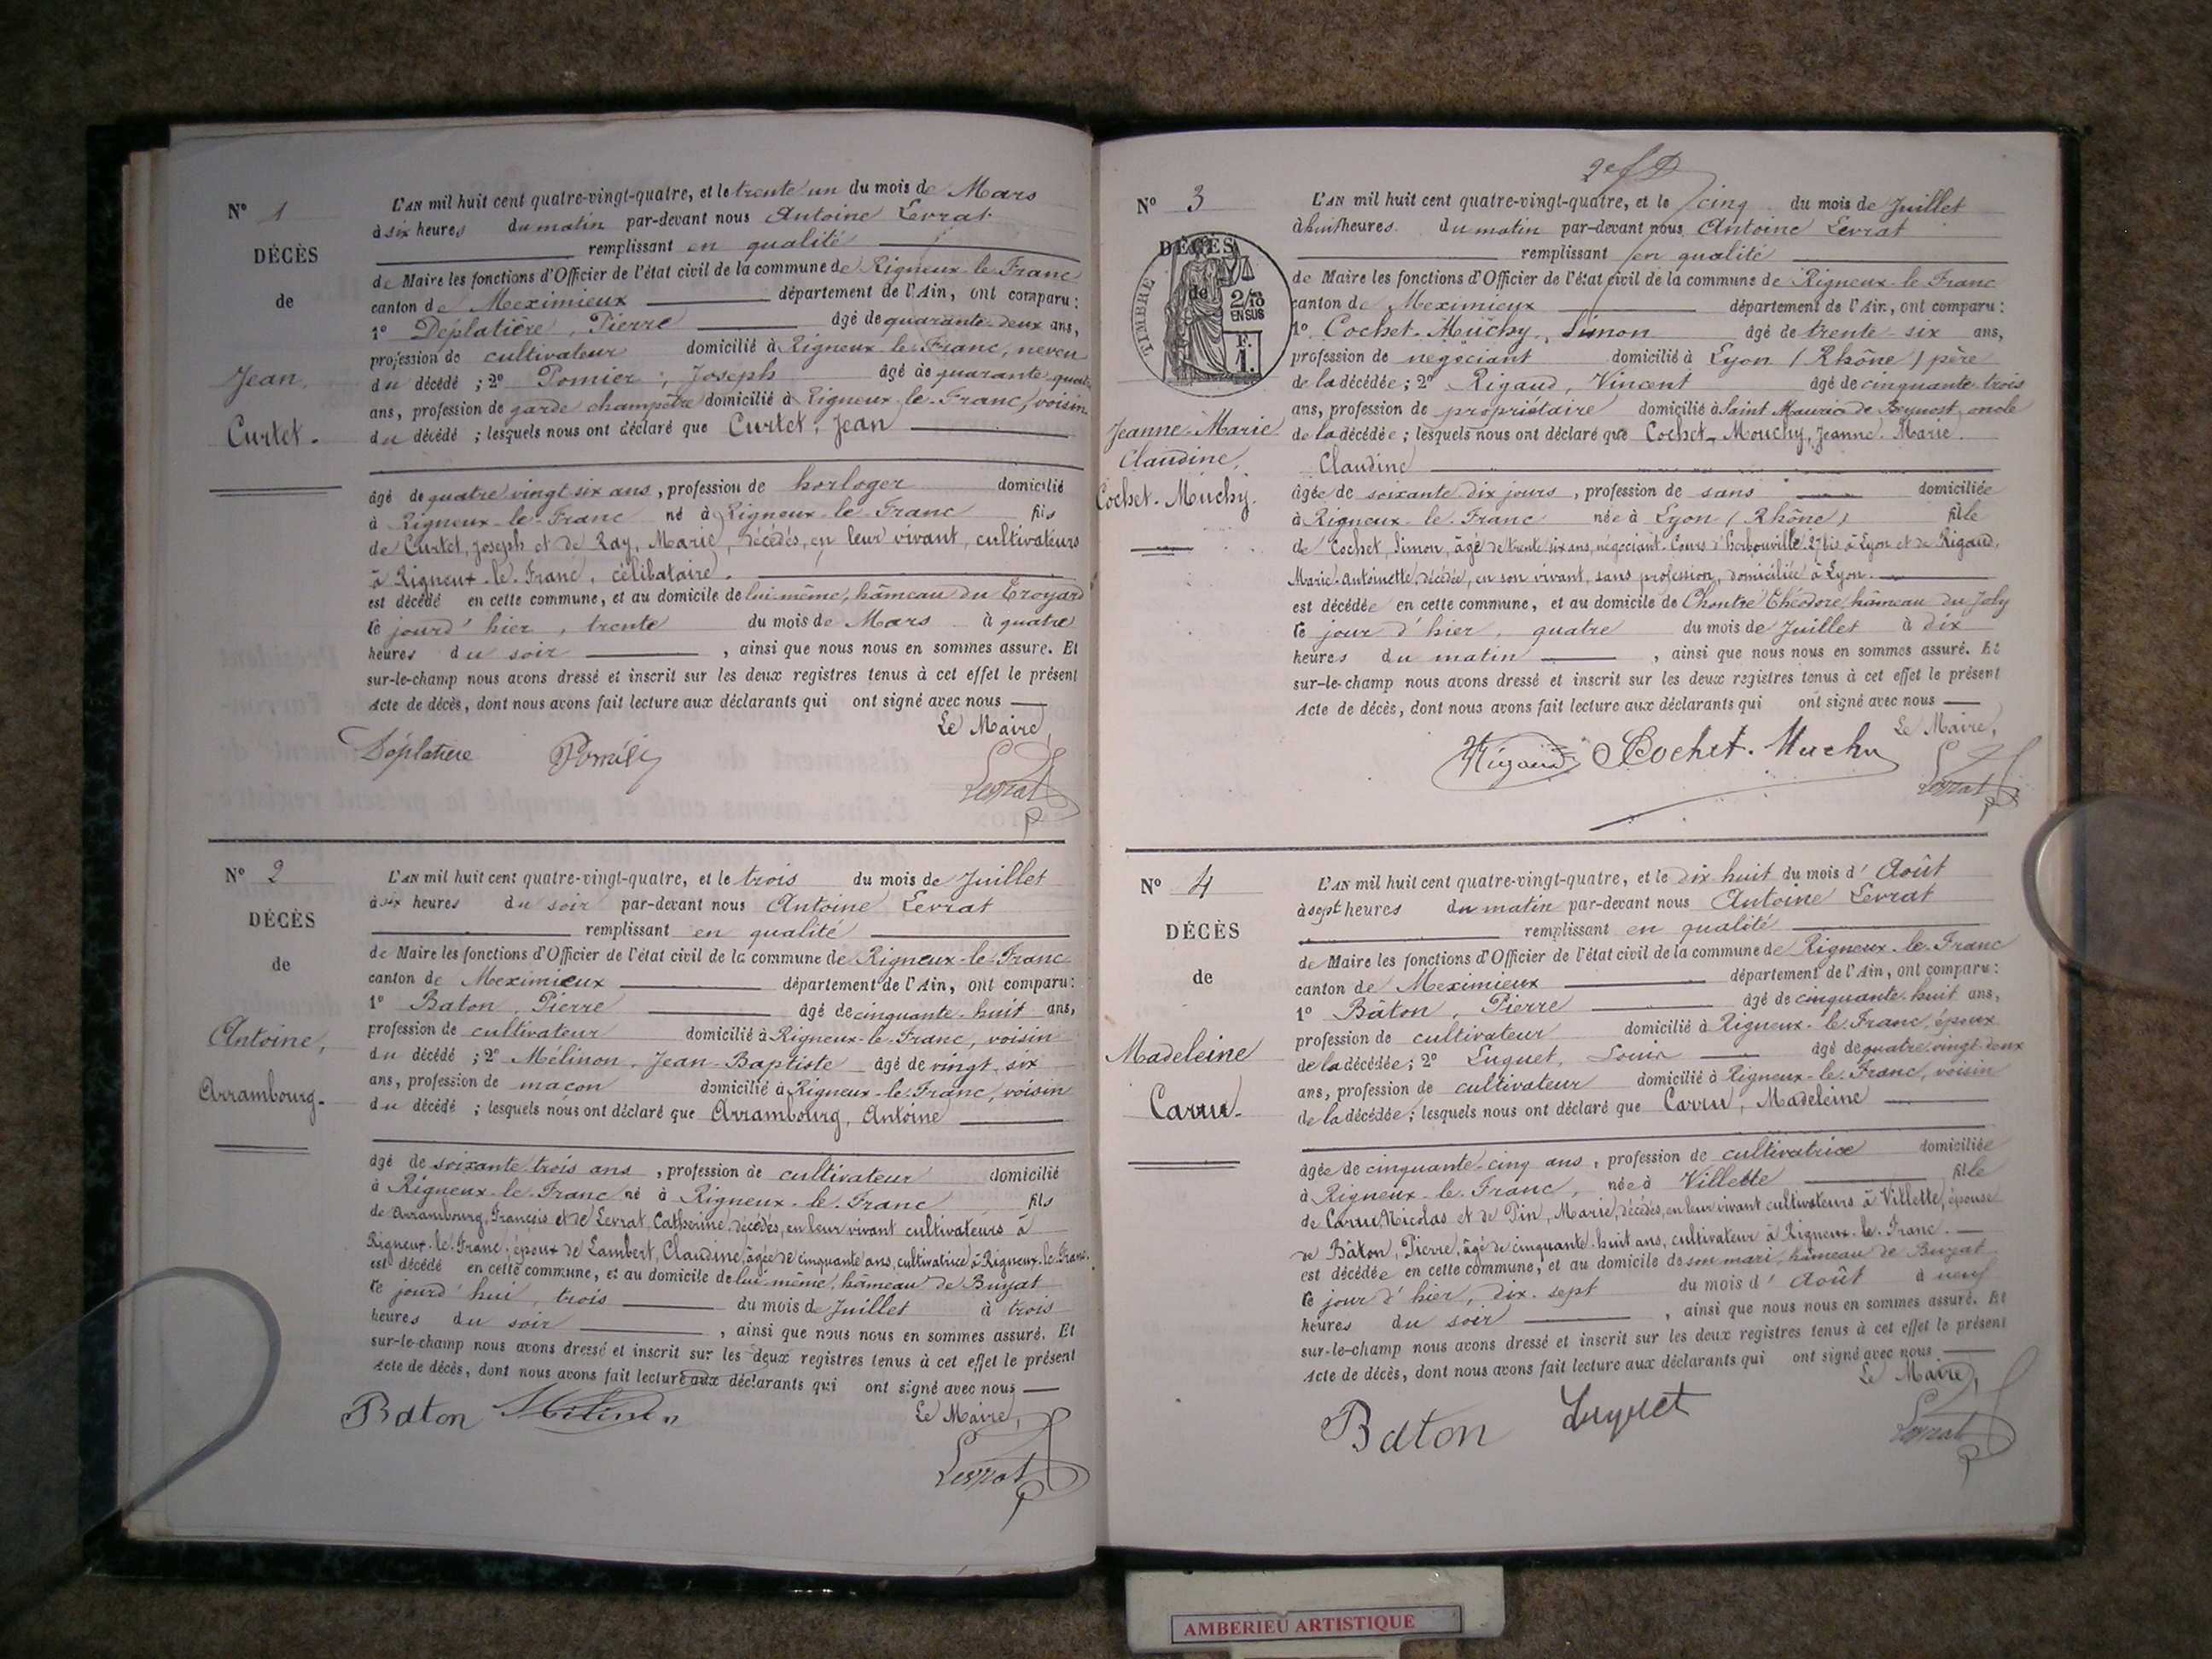 N° 1
DÉCÈS
de
Jean,
Curtet.
L'AN mil huit cent quatre-vingt-quatre, et le trente un du mois de Mars
à six heures du matin par-devant nous Antoine Levrat
remplissant en qualité
de Maire les fonctions d'Officier de l'état civil de la commune de Rigneux-le-Franc
canton de Meximieux département de l'Ain, ont comparu:
1° Déplatière, Pierre âgé de quarante-deux ans,
profession de cultivateur domicilié à Rigneux-le-Franc, neveu
du décédé ; 2° Pomier, Joseph âgé de quarante quatre
ans, profession de garde champêtre domicilié à Rigneux-le-Franc, voisin
du décédé ; lesquels nous ont déclaré que Curtet, Jean
âgé de quatre vingt six ans, profession de horloger domicilié
à Rigneux-le-Franc né à Rigneux-le-Franc fils
de Curtet, Joseph et de Ray, Marie, décédés, en leur vivant, cultivateurs
à Rigneux-le-Franc, célibataire.
est décédé en cette commune, et au domicile de lui-même, hâmeau du Croyard
le jourd'hier, trente du mois de Mars à quatre
heures du soir , ainsi que nous nous en sommes assuré. Et
sur-le-champ nous avons dressé et inscrit sur les deux registres tenus à cet effet le présent
Acte de décès, dont nous avons fait lecture aux déclarants qui ont signé avec nous
Le Maire,
Déplatiere Levrat
N° 2
DÉCÈS
de
Antoine,
Arrambourg.
L'AN mil huit cent quatre-vingt-quatre, et le trois du mois de Juillet
à six heures du soir par-devant nous Antoine Levrat
remplissant en qualité
de Maire les fonctions d'Officier de l'état civil de la commune de Rigneux-le-Franc
canton de Meximieux département de l'Ain, ont comparu:
1° Baton, Pierre âgé de cinquante-huit ans,
profession de cultivateur domicilié à Rigneux-le-Franc, voisin
du décédé ; 2° Mélinon, Jean-Baptiste âgé de vingt-six
ans, profession de maçon domicilié à Rigneux-le-Franc, voisin
du décédé ; lesquels nous ont déclaré que Arrambourg, Antoine
âgé de soixante trois ans, profession de cultivateur domicilié
à Rigneux-le-Franc né à Rigneux-le-Franc fils
de Arrambourg, François et de Levrat, Catherine, décédés, en leur vivant cultivateurs à
Rigneux-le-Franc, époux de Lambert, Claudine, âgée de cinquante ans, cultivatrice à Rigneux-le-Franc.
est décédé en cette commune, et au domicile de lui-même, hâmeau de Buyat
le jourd'hui, trois du mois de Juillet à trois
heures du soir , ainsi que nous nous en sommes assuré. Et
sur-le-champ nous avons dressé et inscrit sur les deux registres tenus à cet effet le présent
Acte de décès, dont nous avons fait lecture aux déclarants qui ont signé avec nous
Le Maire,
Baton Mélinon Levrat
N° 3
DÉCÈS
de
TIMBRE
2/10
EN SUS
F.
1.
Jeanne-Marie
Claudine,
Cochet-Muchy.
L'AN mil huit cent quatre-vingt-quatre, et le cinq du mois de Juillet
à huit heures du matin par-devant nous Antoine Levrat
remplissant en qualité
de Maire les fonctions d'Officier de l'état civil de la commune de Rigneux-le-Franc
canton de Meximieux département de l'Ain, ont comparu:
1° Cochet-Muchy, Simon âgé de trente-six ans,
profession de négociant domicilié à Lyon (Rhône) père
de la décédée ; 2° Rigaud, Vincent âgé de cinquante-trois
ans, profession de propriétaire domicilié à Saint Maurice de Beynost, oncle
de la décédée ; lesquels nous ont déclaré que Cochet-Mouchy, Jeanne-Marie
Claudine
âgée de soixante dix jours, profession de sans domiciliée
à Rigneux-le-Franc née à Lyon (Rhône) fille
de Cochet, Simon, âgé de trente six ans, négociant. Cours d'herbouville 27 bis à Lyon et de Rigaud,
Marie-Antoinette, décédée, en son vivant, sans profession, domiciliée à Lyon.
est décédée en cette commune, et au domicile de Chontre Théodore, hâmeau du Joly
le jour d'hier, quatre du mois de Juillet à dix
heures du matin , ainsi que nous nous en sommes assuré. Et
sur-le-champ nous avons dressé et inscrit sur les deux registres tenus à cet effet le présent
Acte de décès, dont nous avons fait lecture aux déclarants qui ont signé avec nous
Le Maire,
Rigaud Cochet-Muchy Levrat
N° 4
DÉCÈS
de
Madeleine
Carru.
L'AN mil huit cent quatre-vingt-quatre, et le dix huit du mois d'Août
à sept heures du matin par-devant nous Antoine Levrat
remplissant en qualité
de Maire les fonctions d'Officier de l'état civil de la commune de Rigneux-le-Franc
canton de Meximieux département de l'Ain, ont comparu:
1° Bâton, Pierre âgé de cinquante-huit ans,
profession de cultivateur domicilié à Rigneux-le-Franc, époux
de la décédée ; 2° Luquet, Louis âgé de quatre vingt-deux
ans, profession de cultivateur domicilié à Rigneux-le-Franc, voisin
de la décédée ; lesquels nous ont déclaré que Carru, Madeleine
âgée de cinquante-cinq ans, profession de cultivatrice domiciliée
à Rigneux-le-Franc, née à Villette fille
de Carru, Nicolas et de Pin, Marie, décédés, en leur vivant cultivateurs à Villette, épouse
de Bâton, Pierre, âgé de cinquante-huit ans, cultivateur à Rigneux-le-Franc.
est décédée en cette commune, et au domicile de son mari, hâmeau de Buyat
le jour d'hier, dix-sept du mois d'Août à neuf
heures du soir , ainsi que nous nous en sommes assuré. Et
sur-le-champ nous avons dressé et inscrit sur les deux registres tenus à cet effet le présent
Acte de décès, dont nous avons fait lecture aux déclarants qui ont signé avec nous
Le Maire,
Baton Luquet Levrat
AMBERIEU ARTISTIQUE